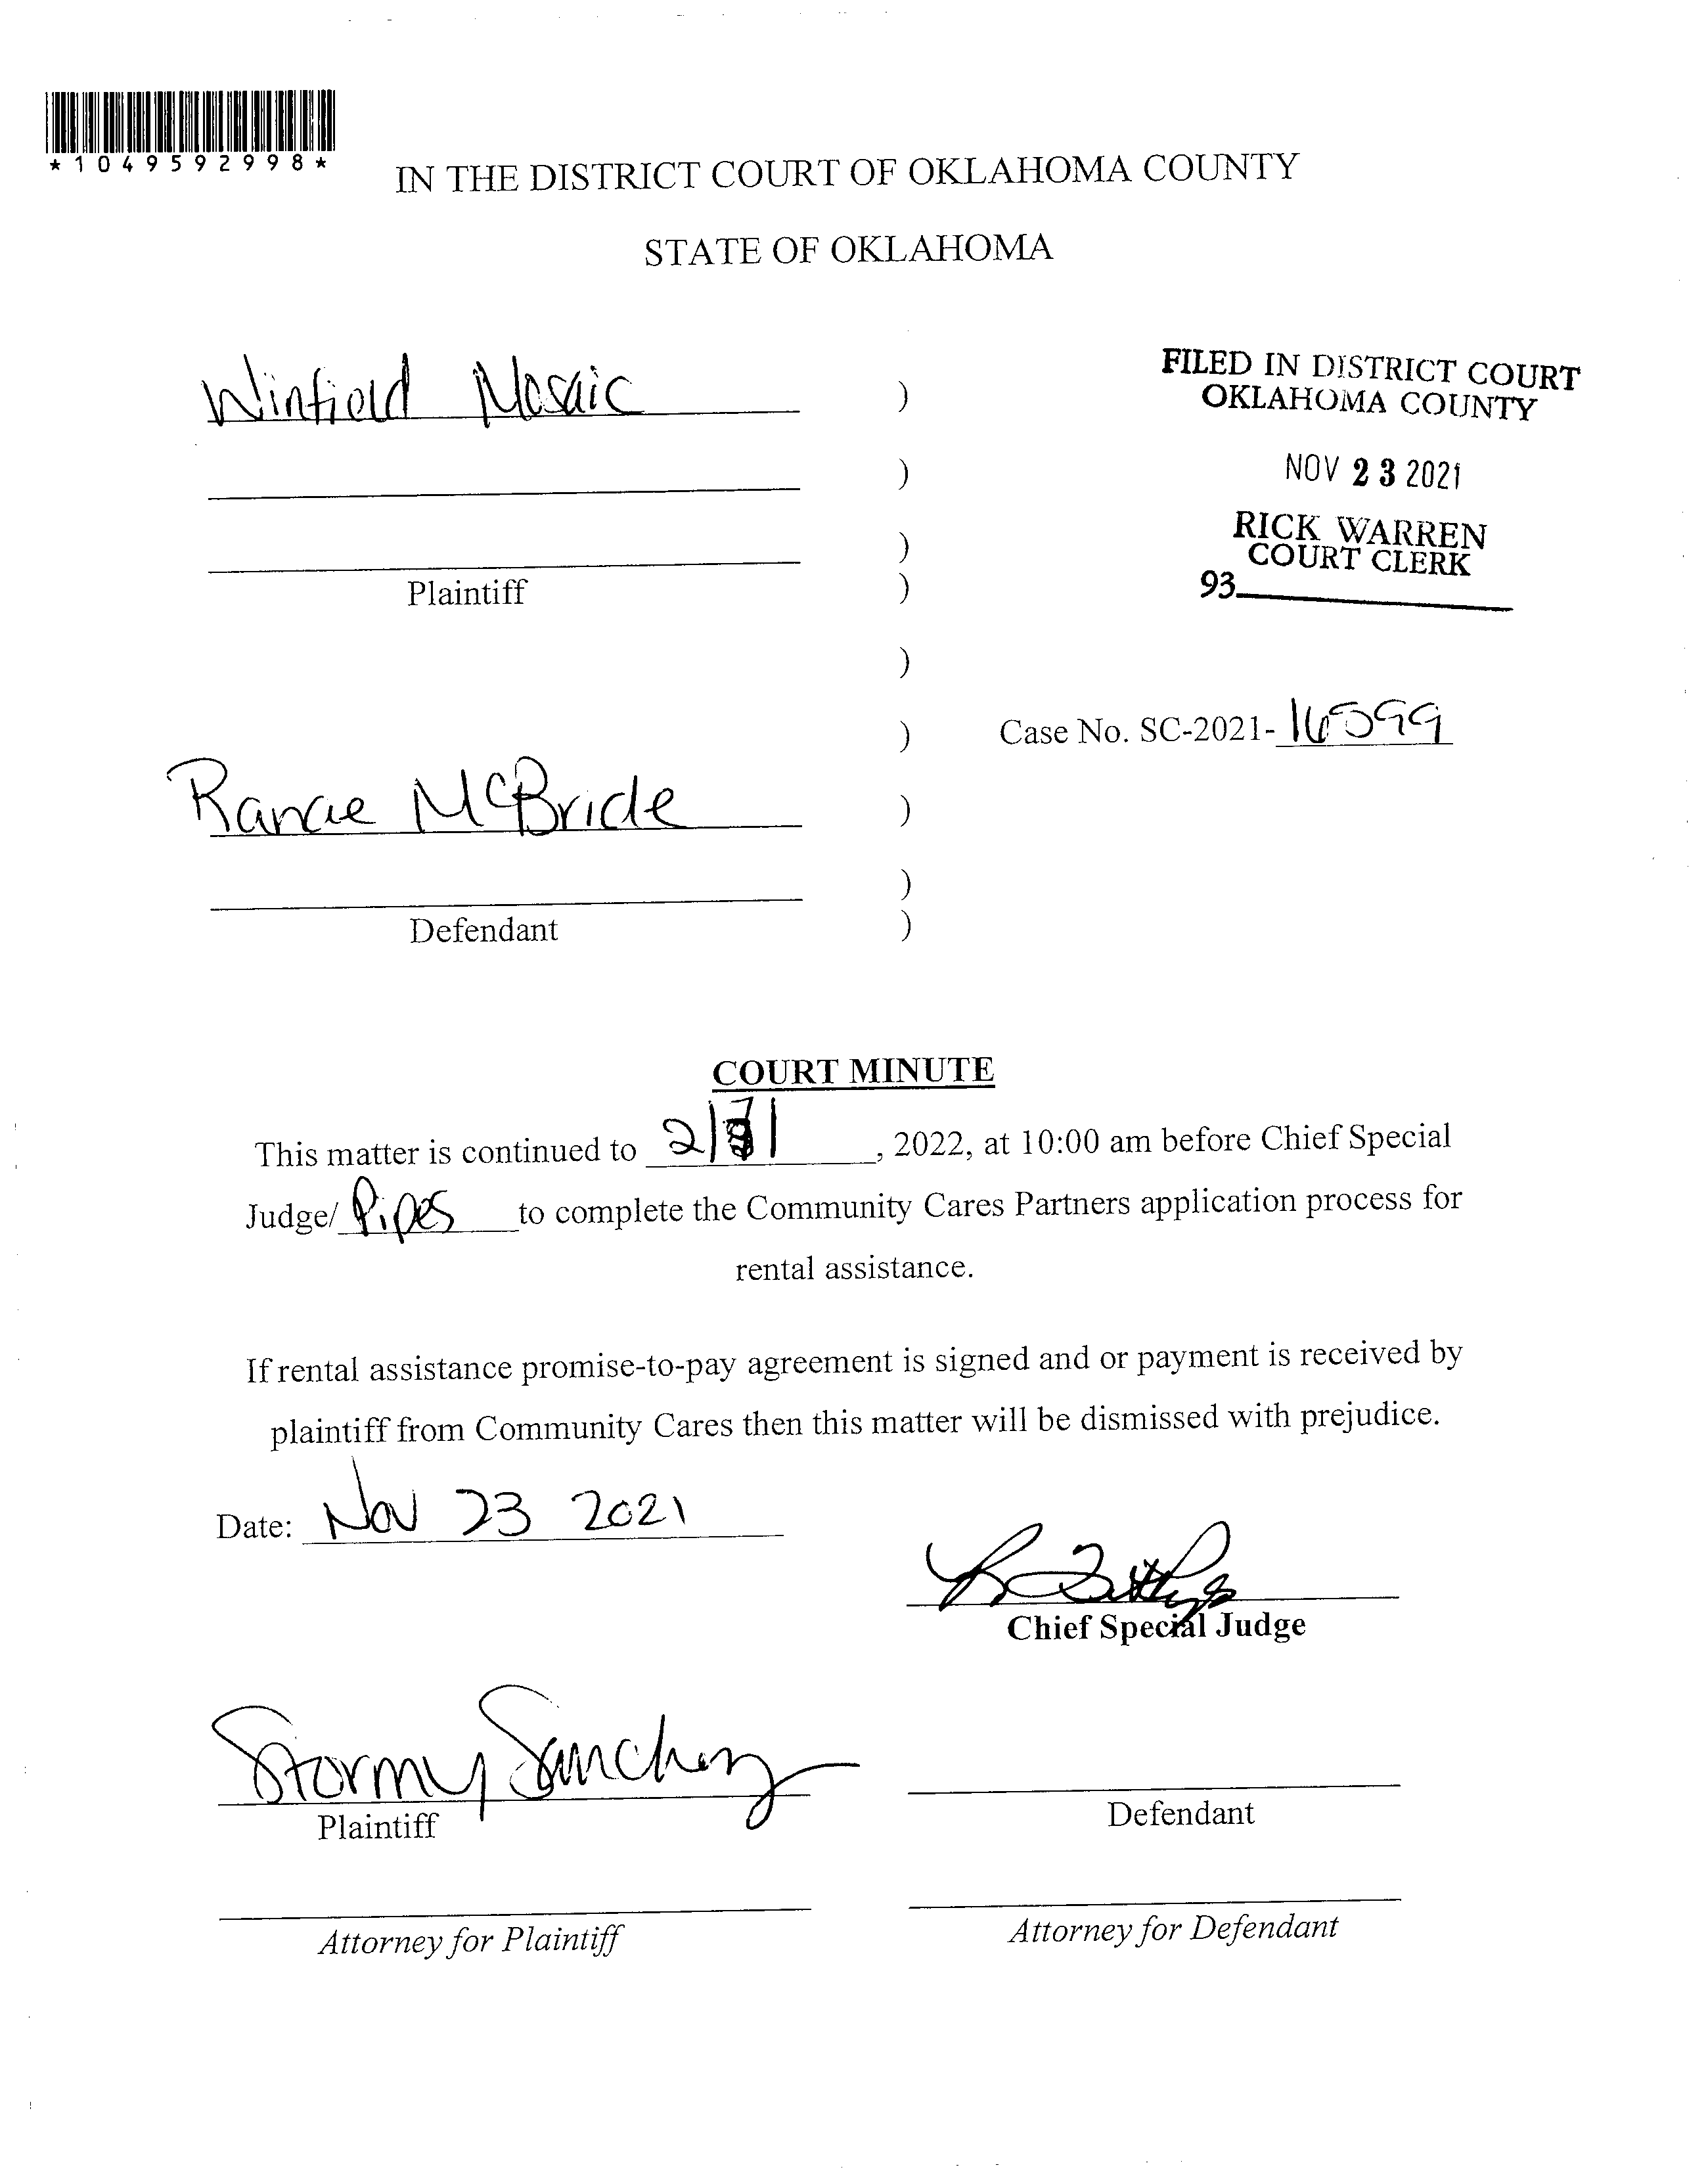 *1049592998*
IN THE DISTRICT COURT OF OKLAHOMA COUNTY
STATE OF OKLAHOMA
Winfield Mosaic )
)
)
Plaintiff )
FILED IN DISTRICT COURT
OKLAHOMA COUNTY
NOV 23 2021
RICK WARREN
COURT CLERK
93
)
) Case No. SC-2021-16599
Ranae McBride )
)
Defendant )
COURT MINUTE
This matter is continued to 2/ , 2022, at 10:00 am before Chief Special
Judge/ Pipes to complete the Community Cares Partners application process for
rental assistance.
If rental assistance promise-to-pay agreement is signed and or payment is received by
plaintiff from Community Cares then this matter will be dismissed with prejudice.
Date: Nov 23 2021
Chief Special Judge
Stormy Sanchez
Plaintiff
Defendant
Attorney for Plaintiff
Attorney for Defendant